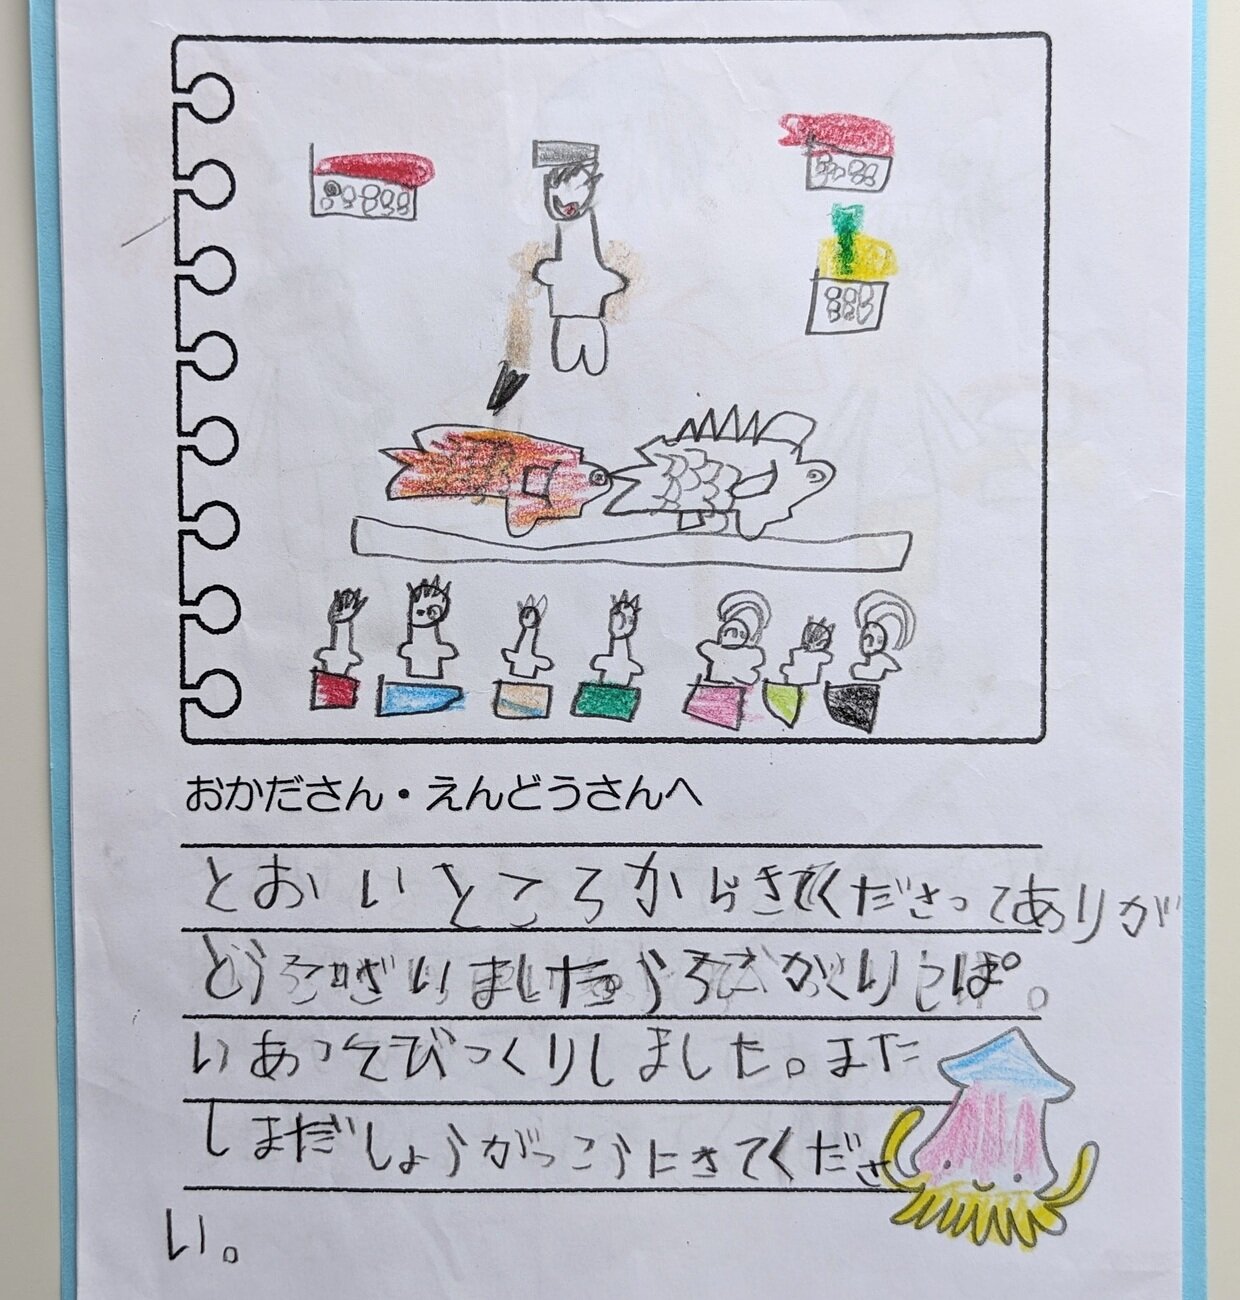 おかださん・えんどうさんへ
とおいところからきてくださってありが
どうございました うろこがいっぱ。
いあってびっくりしました。また
しまだしょうがっこうにきてくださ
い。